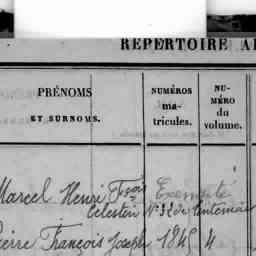 RÉPERTOIRE AL
PRÉNOMS
ET SURNOMS.
NUMÉROS
ma-
tricules.
NU-
MÉRO
du
volume.
Marcel Henri Fçois Exempté
Célestin N° 32 de
Pierre François Joseph 1845 4